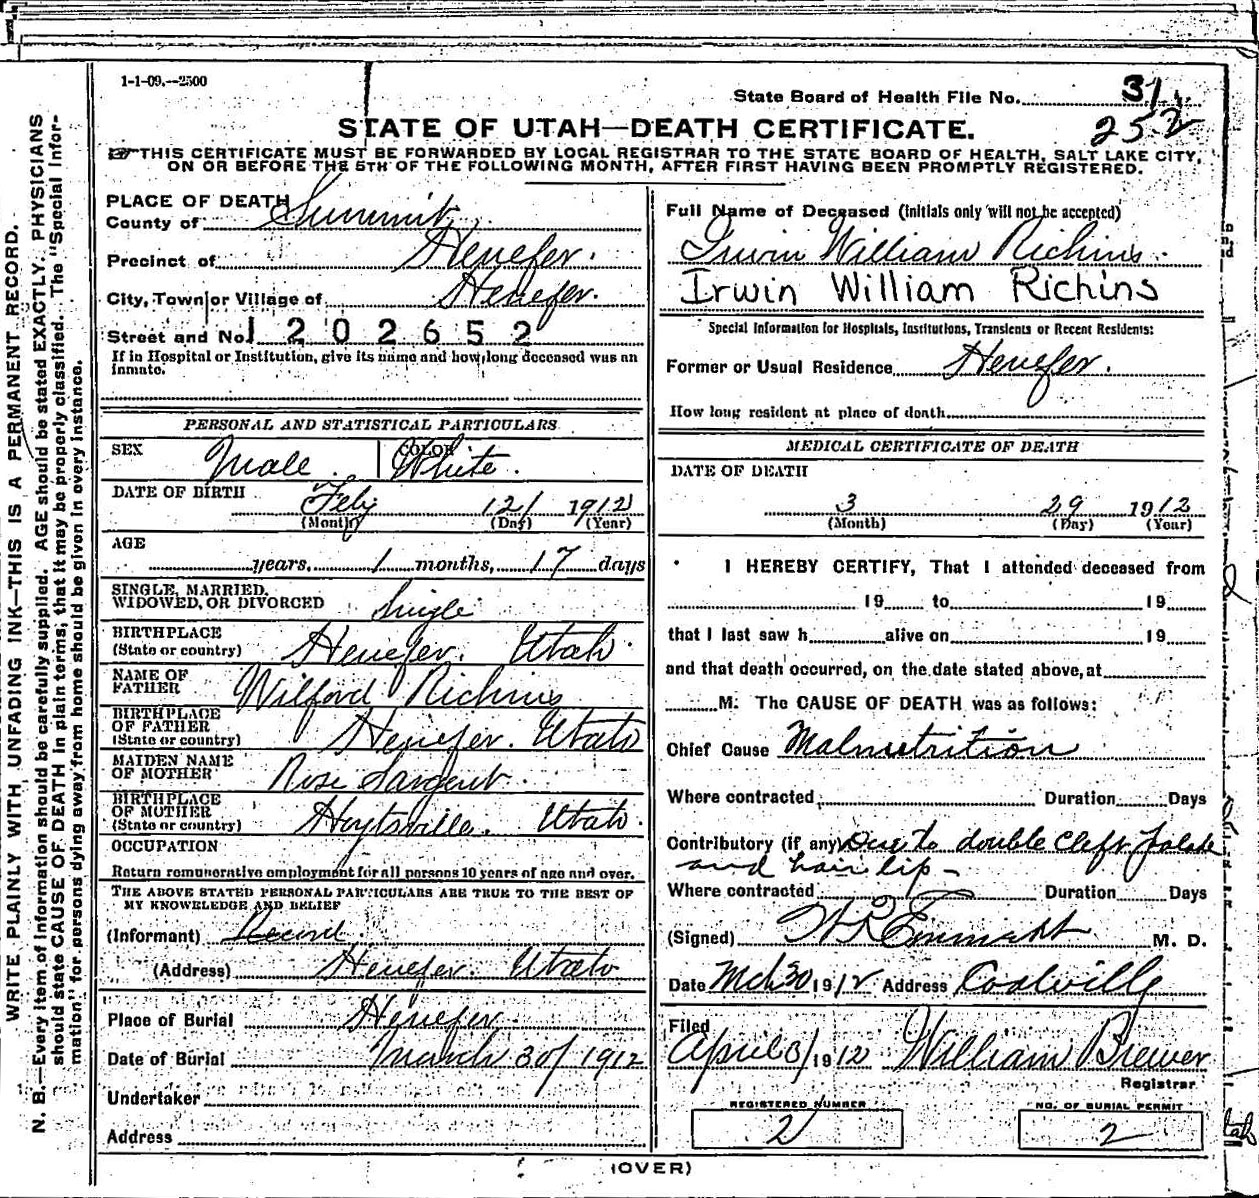 1-1-09.--2500
State Board of Health File No. 31
252
STATE OF UTAH—DEATH CERTIFICATE.
☞THIS CERTIFICATE MUST BE FORWARDED BY LOCAL REGISTRAR TO THE STATE BOARD OF HEALTH, SALT LAKE CITY,
ON OR BEFORE THE 5TH OF THE FOLLOWING MONTH, AFTER FIRST HAVING BEEN PROMPTLY REGISTERED.
PLACE OF DEATH
County of Summit
Precinct of Henefer.
City, Town or Village of Henefer.
Street and No. 1202652
If in Hospital or Institution, give its name and how long deceased was an
inmate.
PERSONAL AND STATISTICAL PARTICULARS
SEX Male. COLOR White.
DATE OF BIRTH Feby 12/ 1912
(Month) (Day) (Year)
AGE
years, 1 months, 17 days
SINGLE, MARRIED,
WIDOWED, OR DIVORCED Single
BIRTHPLACE
(State or country) Henefer. Utah.
NAME OF
FATHER Wilford Richins
BIRTHPLACE
OF FATHER
(State or country) Henefer. Utah
MAIDEN NAME
OF MOTHER Rose Sargent.
BIRTHPLACE
OF MOTHER
(State or country) Hoytsville. Utah.
OCCUPATION
Return remunerative employment for all persons 10 years of age and over.
THE ABOVE STATED PERSONAL PARTICULARS ARE TRUE TO THE BEST OF
MY KNOWELEDGE AND BELIEF
(Informant) Record.
(Address) Henefer. Utah
Place of Burial Henefer
Date of Burial March 30/ 1912
Undertaker
Address
Full Name of Deceased (initials only will not be accepted)
Irwin William Richins.
Irwin William Richins
Special Information for Hospitals, Institutions, Transients or Recent Residents:
Former or Usual Residence Henefer.
How long resident at place of death
MEDICAL CERTIFICATE OF DEATH
DATE OF DEATH
3 29 1912
(Month) (Day) (Year)
I HEREBY CERTIFY, That I attended deceased from
19 to 19
that I last saw h alive on 19
and that death occurred, on the date stated above, at
M. The CAUSE OF DEATH was as follows:
Chief Cause Malnutrition
Where contracted Duration Days
Contributory (if any) Due to double cleft palate
and hair lip -
Where contracted Duration Days
(Signed) M. D.
Date Mch 30 1912 Address Coalville
Filed
April 3/ 1912 William Brewer
Registrar
REGISTERED NUMBER NO. OF BURIAL PERMIT
2 2
(OVER)
WRITE PLAINLY WITH UNFADING INK—THIS IS A PERMANENT RECORD.
N. B.—Every item of information should be carefully supplied. AGE should be stated EXACTLY. PHYSICIANS
should state CAUSE OF DEATH in plain terms; that it may be properly classified. The "Special Infor-
mation" for persons dying away from home should be given in every instance.